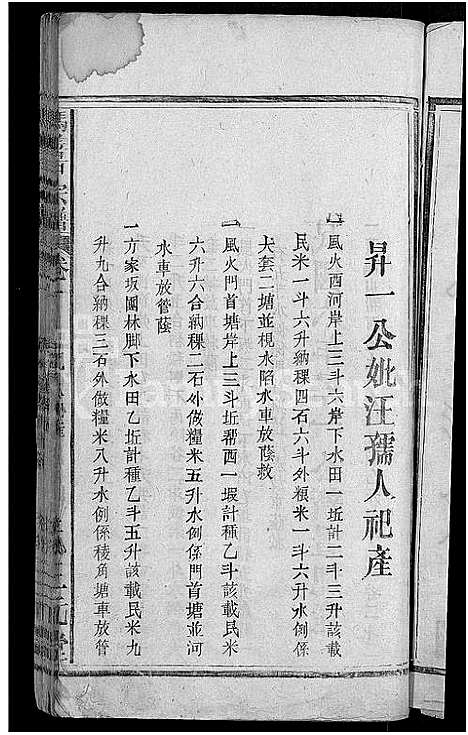 昇一公妣汪孺人祀產
一風火西河岸上三斗六岸下水田一坵計二斗三升該載
民米一斗六升納稞四石六斗外糧米一斗六升水例係
大套二塘並梘水陷水車放蔭救
一風火門首塘岸上三斗坵幫西一塅計種乙斗該載民米
六升六合納稞二石外做糧米五升水例係門首塘並河
水車放管蔭
一方家坂園林脚下水田乙坵計種乙斗五升該載民米九
升九合納稞三石外做糧米八升水例係稜角塘車放管